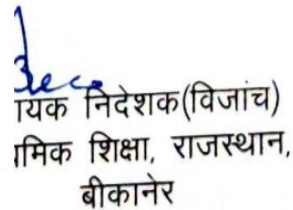 ायक निदेशक(विजांच)
ामिक शिक्षा, राजस्थान,
बीकानेर